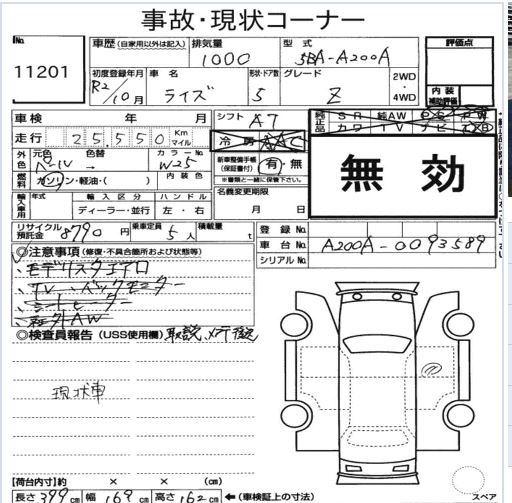 事故・現状コーナー
No.
11201
車歴 (自家用以外は記入) 排気量 型式
1000 5BA-A200A
初度登録年月 車名 形状・ドア数 グレード 2WD・4WD
R2/10月 ライズ 5 Z
評価点
内装補助評価
車検 年 月 シフト A7
走行 25,550 Km マイル
冷房 AAC
純正品 SR 純AW PS PW
カワ TV ナビ
外色 元色 色替 カラーNo. W25
パール →
新車整備手帳(保証書付) 有・無
※書類と一緒に保管下さい
燃料 ガソリン・軽油・( ) 内装色
名義変更期限
月 日
輸入車用 年式 輸入区分 ハンドル
ディーラー・並行 左・右
無効
リサイクル預託金 8790 円 乗車定員 5人 積載量 t
登録No.
車台No. A200A-0093589
シリアルNo.
◎注意事項 (修復・不具合箇所および状態等)
モデリスタエアロ
TV、バックモニター
シートヒーター
社外AW
◎検査員報告 (USS使用欄) 取説、
現状車
【荷台内寸】約 × × (cm)
長さ 399 cm 幅 169 cm 高さ 162 cm ←(車検証上の寸法)
スペア